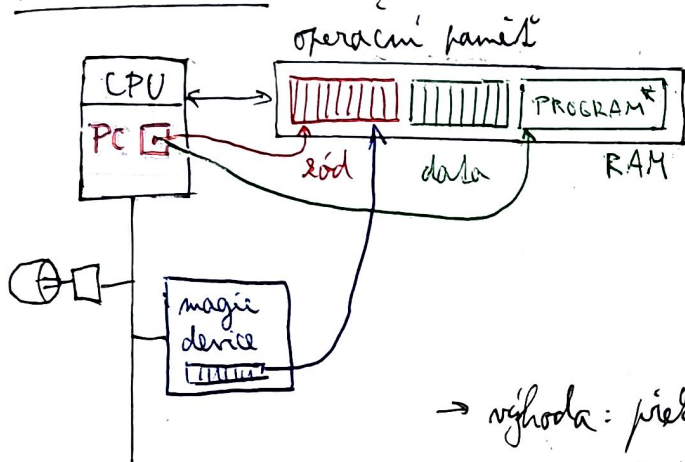 operační paměť
CPU
PC
PROGRAM*
kód
data
RAM
magic
device
→ výhoda: